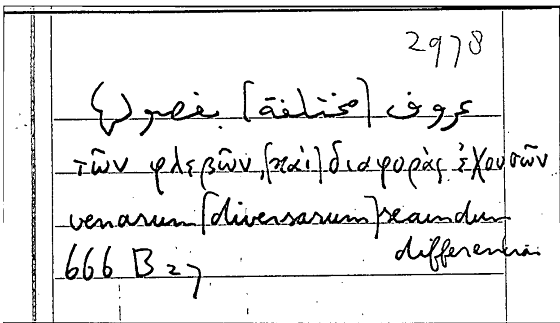 2978
عروف [مختلفة] بفصولها
τῶν φλεβῶν, [καὶ] διαφορὰς ἐχουσῶν
venarum [diversarum] secundum
differentia
666 B 27